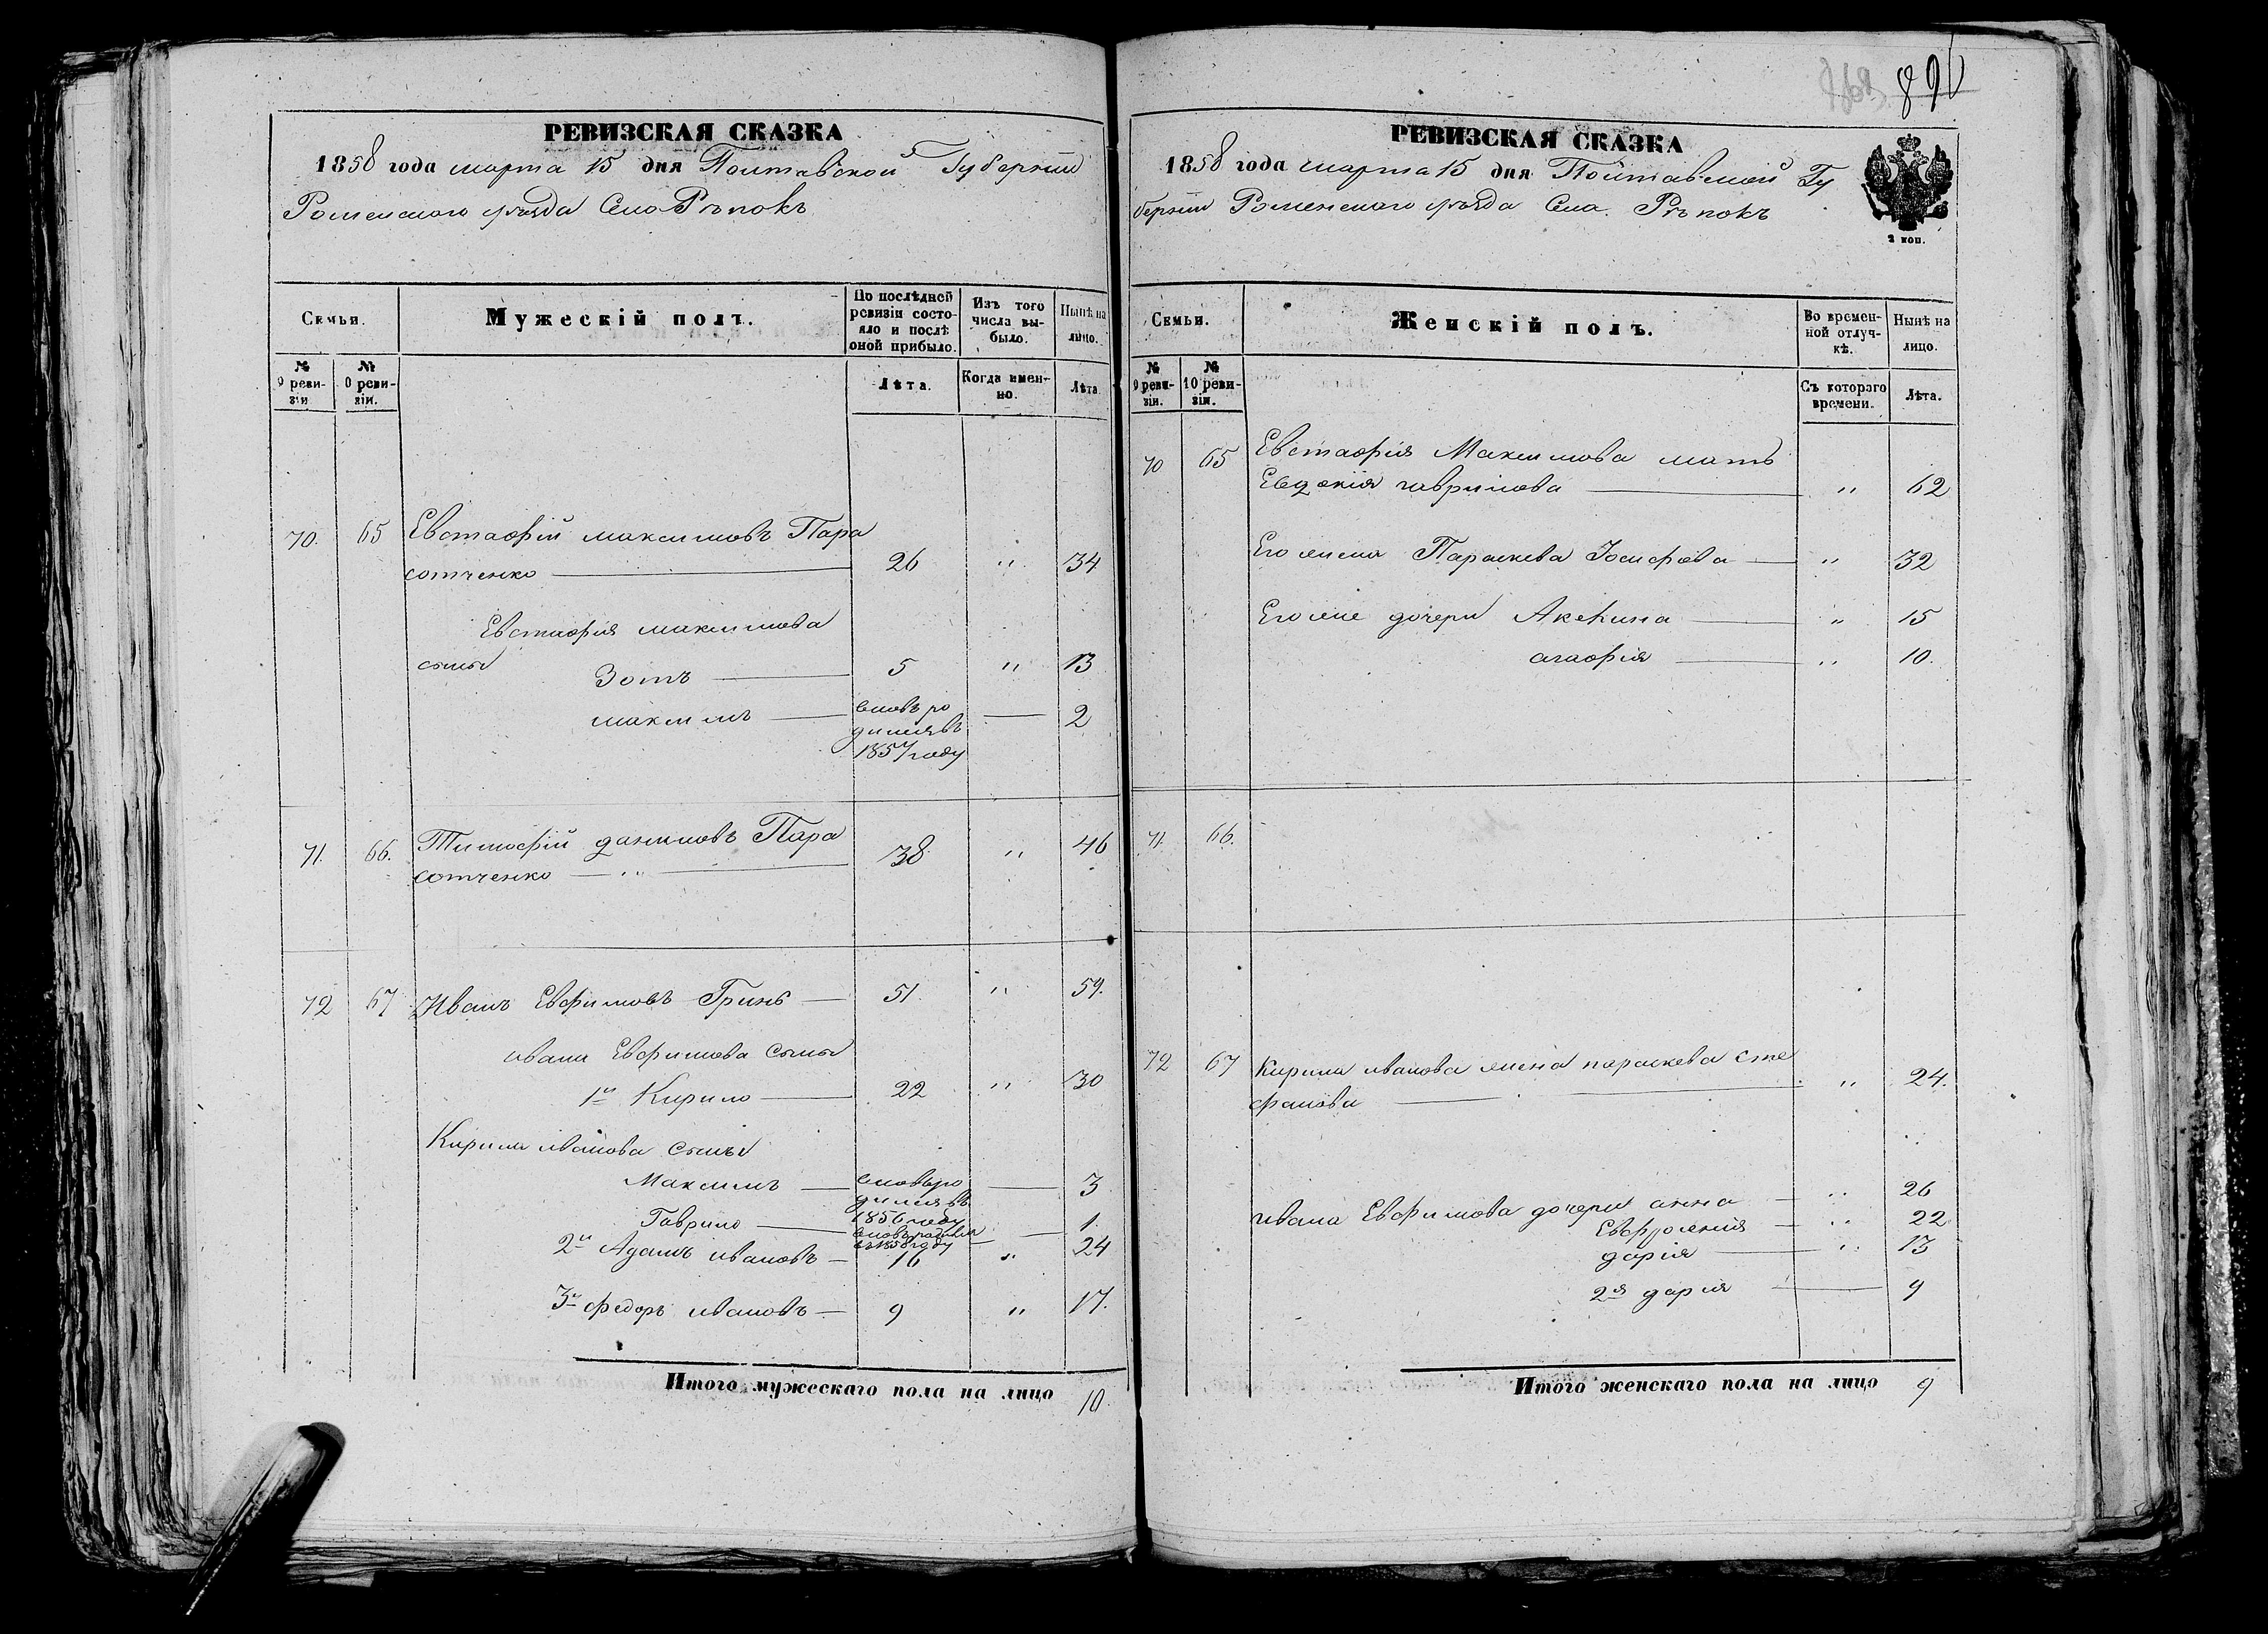 890
РЕВИЗСКАЯ СКАЗКА
1858 года марта 15 дня Полтавской Губерніи
Роменского уѣзда Села Рѣпокъ
Семьи.
Мужескій полъ.
По послѣдней ревизіи состояло и послѣ оной прибыло.
Изъ того числа выбыло.
Нынѣ на лицо.
№ 9 ревизіи
№ 10 ревизіи.
Лѣта.
Когда именно.
Лѣта
70. 65 Евстафій максимовъ Пара
сотченко 26 " 34
Евстафія максимова
сыны
Зотъ 5 " 13
максимъ вновь ро 2
дился въ
1857 году
71. 66. Тимофій даниловъ Пара
сотченко 38 " 46
72 67 Иванъ Евфимовъ Гринь 51 " 59.
ивана Евфимова сыны
1й Кирило 22 " 30
Кирила иванова сыны
Максимъ вновь ро 3
дился въ
1856 году
Гаврило вновь родился 1
въ 1858 году
2й Адамъ ивановъ 16 " 24
3й федоръ ивановъ 9 " 17.
Итого мужескаго пола на лицо 10.
РЕВИЗСКАЯ СКАЗКА
1858 года марта 15 дня Полтавской Гу
берніи Роменского уѣзда Села Рѣпокъ
2 коп.
Семьи.
Женскій полъ.
Во временной отлучкѣ.
Нынѣ на лицо.
№ 9 ревизіи.
№ 10 ревизіи.
Съ котораго времени.
Лѣта.
70 65 Евстафія Максимова мать
Евдокія гаврилова " 62
Его жена Параскева Іосифова " 32
Его же дочери Акелина " 15
агафія " 10.
71. 66.
72 67 Кирила иванова жена параскева сте
фанова " 24.
ивана Евфимова дочери анна " 26
Евфросенія " 22
дарія " 13
2я дарія 9
Итого женскаго пола на лицо 9